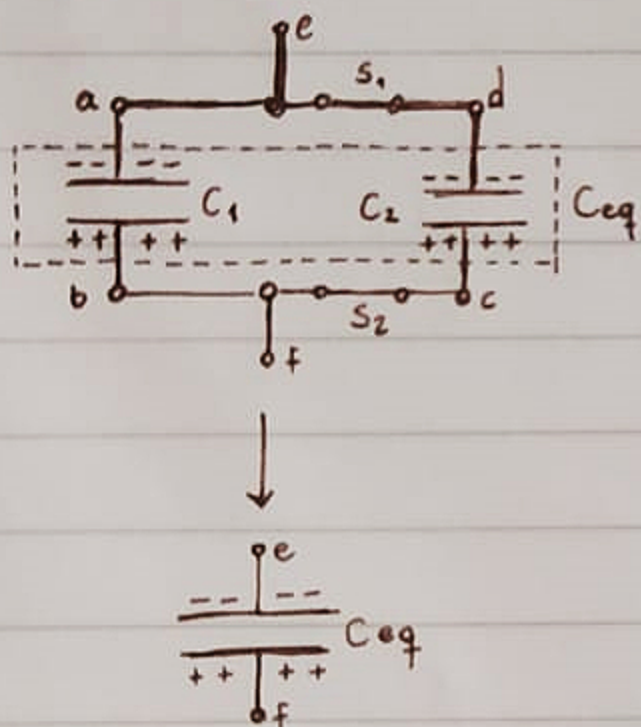 e
a S₁ d
-- --
-- --
C₁ C₂ Ceq
++ ++
++ ++
b S₂ c
f
e
-- --
Ceq
++ ++
f